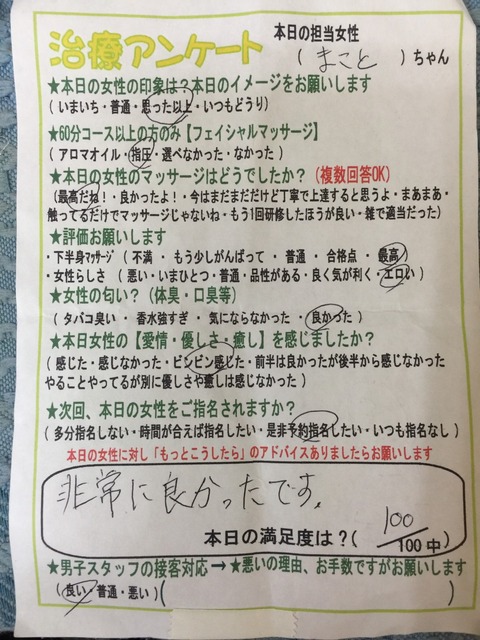 治療アンケート
本日の担当女性
( まこと )ちゃん
★本日の女性の印象は?本日のイメージをお願いします
( いまいち・普通・思った以上・いつもどうり)
★60分コース以上の方のみ【フェイシャルマッサージ】
( アロマオイル・指圧・選べなかった・なかった )
★本日の女性のマッサージはどうでしたか? (複数回答OK)
(最高だね!・良かったよ!・今はまだまだだけど丁寧で上達すると思うよ・まあまあ・
触ってるだけでマッサージじゃないね・もう1回研修したほうが良い・雑で適当だった)
★評価お願いします
・下半身マッサージ ( 不満 ・ もう少しがんばって ・ 普通 ・ 合格点 ・ 最高 )
・女性らしさ ( 悪い・いまひとつ・普通・品性がある・良く気が利く・エロい )
★女性の匂い? (体臭・口臭等)
( タバコ臭い ・ 香水強すぎ ・ 気にならなかった ・ 良かった )
★本日女性の【愛情・優しさ・癒し】を感じましたか?
( 感じた・感じなかった・ビンビン感じた・前半は良かったが後半から感じなかった
やることやってるが別に優しさや癒しは感じなかった )
★次回、本日の女性をご指名されますか?
( 多分指名しない・時間が合えば指名したい・是非予約指名したい・いつも指名なし )
本日の女性に対し「もっとこうしたら」のアドバイスありましたらお願いします
非常に良かったです。
本日の満足度は?( 100/100中 )
★男子スタッフの接客対応 → ★悪いの理由、お手数ですがお願いします
(良い・普通・悪い) ( )